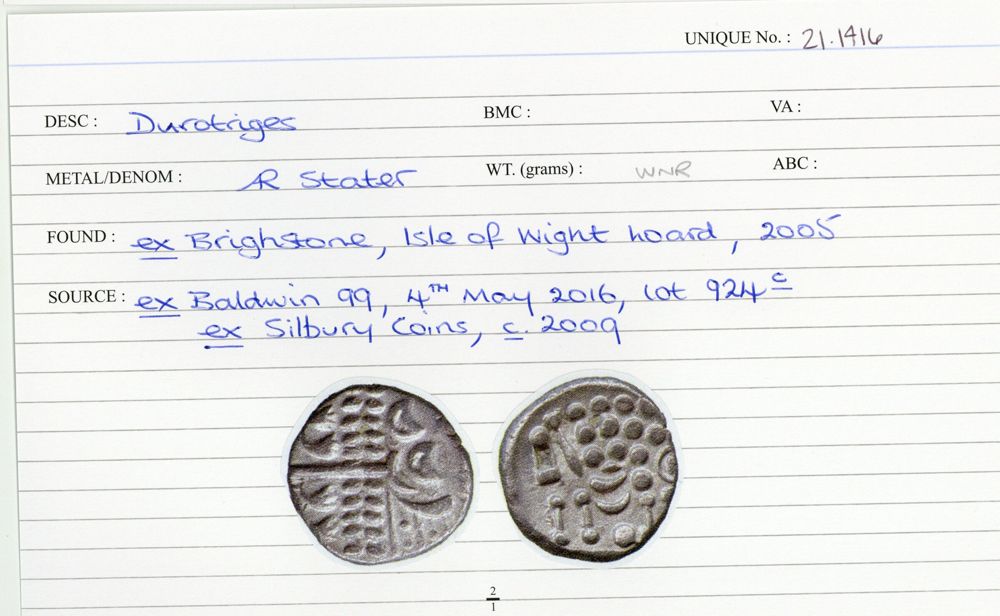 UNIQUE No. : 21.1416
DESC : Durotriges BMC : VA :
METAL/DENOM : ÆR Stater WT. (grams) : WNR ABC :
FOUND : ex Brighstone, Isle of Wight hoard, 2005
SOURCE : ex Baldwin 99, 4TH May 2016, lot 924c
ex Silbury Coins, c. 2009
2
1